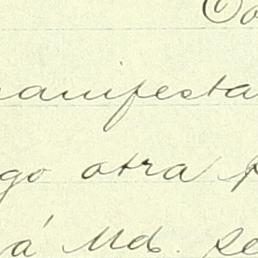 manifesta
go otra
á Md. se